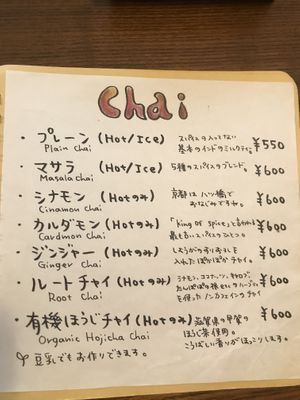 Chai
・プレーン (Hot/Ice) スパイスの入ってない ¥550
Plain Chai 基本のインドのミルクティ。
・マサラ (Hot/Ice) 5種のスパイスのブレンド。 ¥600
Masala Chai
・シナモン (Hotのみ) 京都は八ツ橋で ¥600
Cinamon Chai おなじみですね。
・カルダモン (Hotのみ) 「King of Spice」と言われる ¥600
Cardmon Chai
・ジンジャー (Hotのみ) しょうがのすりおろしを ¥600
Ginger Chai 入れたぽかぽかチャイ。
・ルートチャイ (Hotのみ) ¥600
Root Chai を使ったノンカフェインチャイ
・有機ほうじチャイ (Hotのみ) 滋賀県の ¥600
Organic Hojicha Chai ほうじ茶使用。
こうばしい香りがほっこりします。
豆乳でもお作りできます。